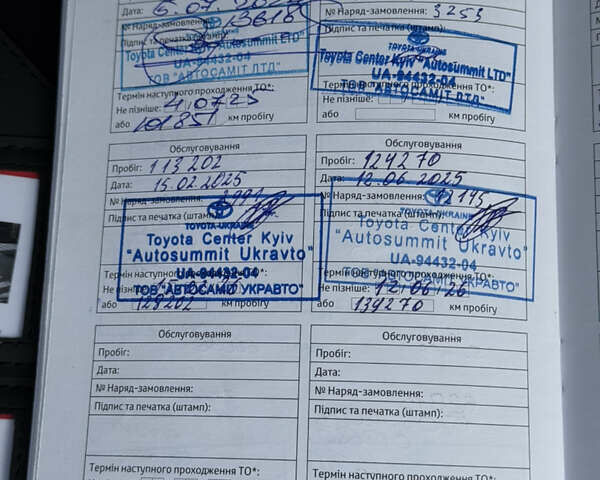 Дата:
№ Наряд-замовлення: 13616
Підпис та печатка (штамп):
TOYOTA-UKRAINE
Toyota Center Kyiv "Autosummit LTD"
UA-94432-04
ТОВ "АВТОСАМІТ ЛТД"
Термін наступного проходження ТО*:
Не пізніше: 4.07.23
або 101851 км пробігу
№ Наряд-замовлення: 3253
Підпис та печатка (штамп):
TOYOTA-UKRAINE
Toyota Center Kyiv "Autosummit LTD"
UA-94432-04
ТОВ "АВТОСАМІТ ЛТД"
Термін наступного проходження ТО*:
Не пізніше:
або км пробігу
Обслуговування
Пробіг: 113202
Дата: 15.02.2025
№ Наряд-замовлення:
Підпис та печатка (штамп):
TOYOTA-UKRAINE
Toyota Center Kyiv
"Autosummit Ukravto"
UA-94432-04
ТОВ "АВТОСАМІТ УКРАВТО"
Термін наступного проходження ТО*:
Не пізніше:
або 128202 км пробігу
Обслуговування
Пробіг: 124270
Дата: 12.06.2025
№ Наряд-замовлення: 12145
Підпис та печатка (штамп):
TOYOTA-UKRAINE
Toyota Center Kyiv
"Autosummit Ukravto"
UA-94432-04
ТОВ "АВТОСАМІТ УКРАВТО"
Термін наступного проходження ТО*:
Не пізніше: 12.06.26
або 139270 км пробігу
Обслуговування
Пробіг:
Дата:
№ Наряд-замовлення:
Підпис та печатка (штамп):
Термін наступного проходження ТО*:
Обслуговування
Пробіг:
Дата:
№ Наряд-замовлення:
Підпис та печатка (штамп):
Термін наступного проходження ТО*: